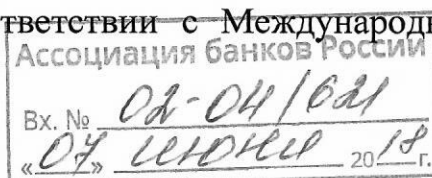 тветствии с Международн
Ассоциация банков России
Вх. № 02-04/621
«07» июня 2018 г.